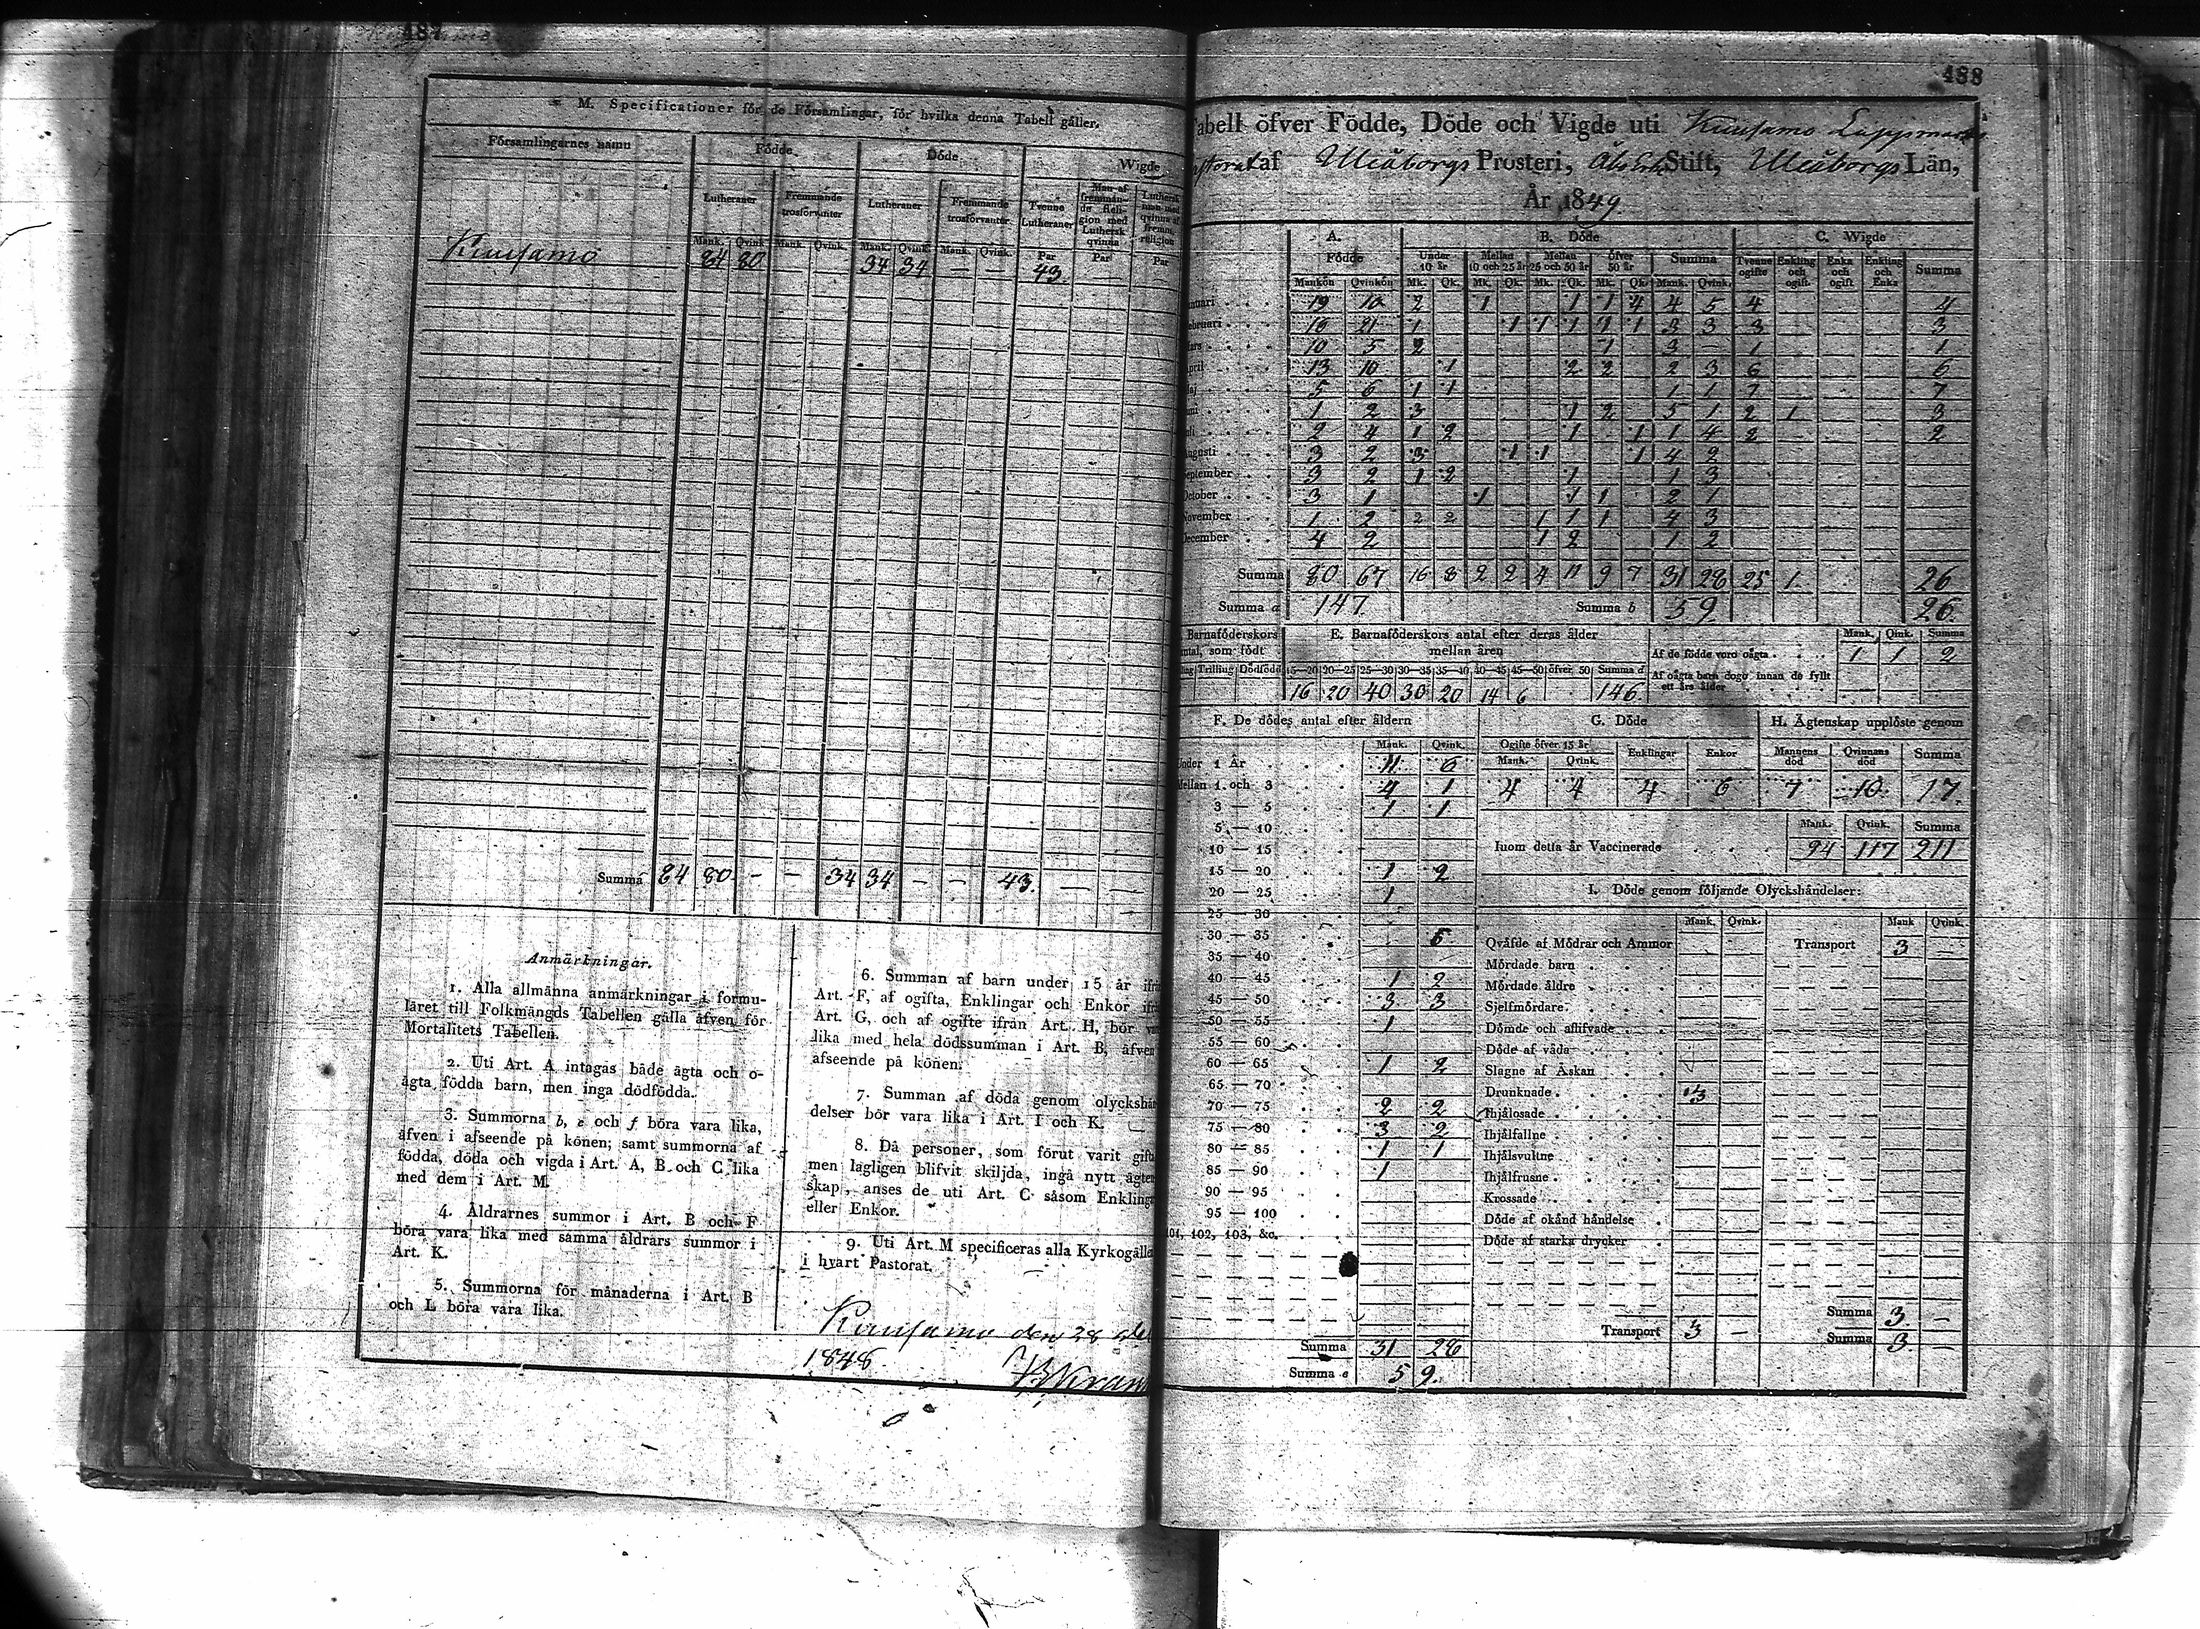 487
M. Specificationer för de Församlingar, för hvilka denna Tabell gäller.
Församlingarnes namn Födde Döde Wigde
Lutheraner Fremmande trosförvanter Lutheraner Fremmande trosförvanter Tvenne Lutheraner Man af fremmande Religion med Luthersk qvinna
Mank. Qvink. Mank. Qvink. Mank. Qvink. Mank. Qvink. Par Par Par
Kuusamo 84 80 34 34 — — 43. —
Summa 84 80 - - 34 34 - - 43. — —
Anmärkningar.
1. Alla allmänna anmärkningar i formu-
läret till Folkmängds Tabellen gälla äfven för
Mortalitets Tabellen.
2. Uti Art. A intagas både ägta och o-
ägta födda barn, men inga dödfödda.
3. Summorna b, e och f böra vara lika,
äfven i afseende på könen; samt summorna af
födda, döda och vigda i Art. A, B och C lika
med dem i Art. M.
4. Åldrarnes summor i Art. B och F
böra vara lika med samma åldrars summor i
Art. K.
5. Summorna för månaderna i Art. B
och L böra vara lika.
6. Summan af barn under 15 år
Art. F, af ogifta, Enklingar och Enkor
Art. G, och af ogifte ifrån Art. H, bör
lika med hela dödssumman i Art. B, äfven
afseende på könen.
7. Summan af döda genom olyckshän
delser bör vara lika i Art. I och K.
8. Då personer, som förut varit gift
men lagligen blifvit skiljda, ingå nytt ägten
skap, anses de uti Art. C såsom Enkling
eller Enkor.
9. Uti Art. M specificeras alla Kyrkogälle
i hvart Pastorat.
Kuusamo den 28
1848.
488
Tabell öfver Födde, Döde och Vigde uti Kuusamo Lappmarks
af Uleåborgs Prosteri, Åbo Stift, Uleåborgs Län,
År 1849.
A. B. Döde C. Wigde
Födde Under 10 år Mellan 10 och 25 år Mellan 25 och 50 år öfver 50 år Summa Tvenne ogifte Enkling och ogift. Enka och ogift Enkling och Enka Summa
Mankön Qvinkön Mk. Qk. Mk. Qk. Mk. Qk. Mk. Qk. Mank. Qvink.
nuari 19 10 2 1 1 1 4 4 5 4 4
ebruari 16 21 1 1 1 1 1 1 3 3 3 3
ars 10 5 2 1 3 — 1 1
pril 13 10 1 2 2 2 3 6 6
aj 5 6 1 1 1 1 7 7
uni 1 2 3 1 2 5 1 2 1 3
uli 2 4 1 2 1 1 1 4 2 2
ugusti 3 2 3 1 1 1 4 2
eptember 3 2 1 2 1 1 3
October 3 1 1 1 1 2 1
November 1 2 2 2 1 1 1 4 3
December 4 2 1 2 1 2
Summa 80 67 16 8 2 2 4 11 9 7 31 28 25 1. 26
Summa a 147 Summa b 59. 26.
Barnaföderskors antal, som födt
Trilling Dödfödd
E. Barnaföderskors antal efter deras ålder
mellan åren
15—20 20—25 25—30 30—35 35—40 40—45 45—50 öfver 50 Summa d
16 20 40 30 20 14 6 146.
Mank. Qink. Summa
Af de födde voro oägta 1 1 2
Af oägta barn dogo innan de fyllt
ett års ålder
F. De dödes antal efter åldern
Mank. Qvink.
Under 1 År 11 6
Mellan 1 och 3 4 1
3 — 5 1 1
5 — 10
10 — 15
15 — 20 1 2
20 — 25 1
25 — 30
30 — 35 5
35 — 40
40 — 45 1 2
45 — 50 3 3
50 — 55 1
55 — 60
60 — 65 1 2
65 — 70
70 — 75 2 2
75 — 80 3 2
80 — 85 1 1
85 — 90 1
90 — 95
95 — 100
101, 102, 103, &c.
Summa 31 28
Summa e 59.
G. Döde
Ogifte öfver 15 år Enklingar Enkor
Mank. Qvink.
4 4 4 6
H. Ägtenskap upplöste genom
Mannens död Qvinnans död Summa
7 10 17.
Mank. Qvink. Summa
Inom detta år Vaccinerade 94 117 211
I. Döde genom följande Olyckshändelser:
Mank. Qvink. Mank Qvink.
Qväfde af Mödrar och Ammor Transport 3 —
Mördade barn
Mördade äldre
Sjelfmördare
Dömde och aflifvade
Döde af våda
Slagne af Åskan
Drunknade 3
Ihjälosade
Ihjälfallne
Ihjälsvultne
Ihjälfrusne
Krossade
Döde af okänd händelse
Döde af starka drycker
Summa 3. —
Transport 3 — Summa 3 —